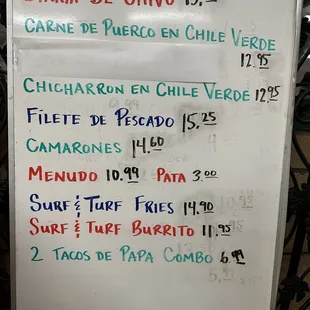 BIRRIA DE CHIVO 15.
CARNE DE PUERCO EN CHILE VERDE
12.95
CHICHARRON EN CHILE VERDE 12.95
FILETE DE PESCADO 15.25
CAMARONES 14.60
MENUDO 10.99 PATA 3.00
SURF & TURF FRIES 14.90
SURF & TURF BURRITO 11.95
2 TACOS DE PAPA COMBO 6.99